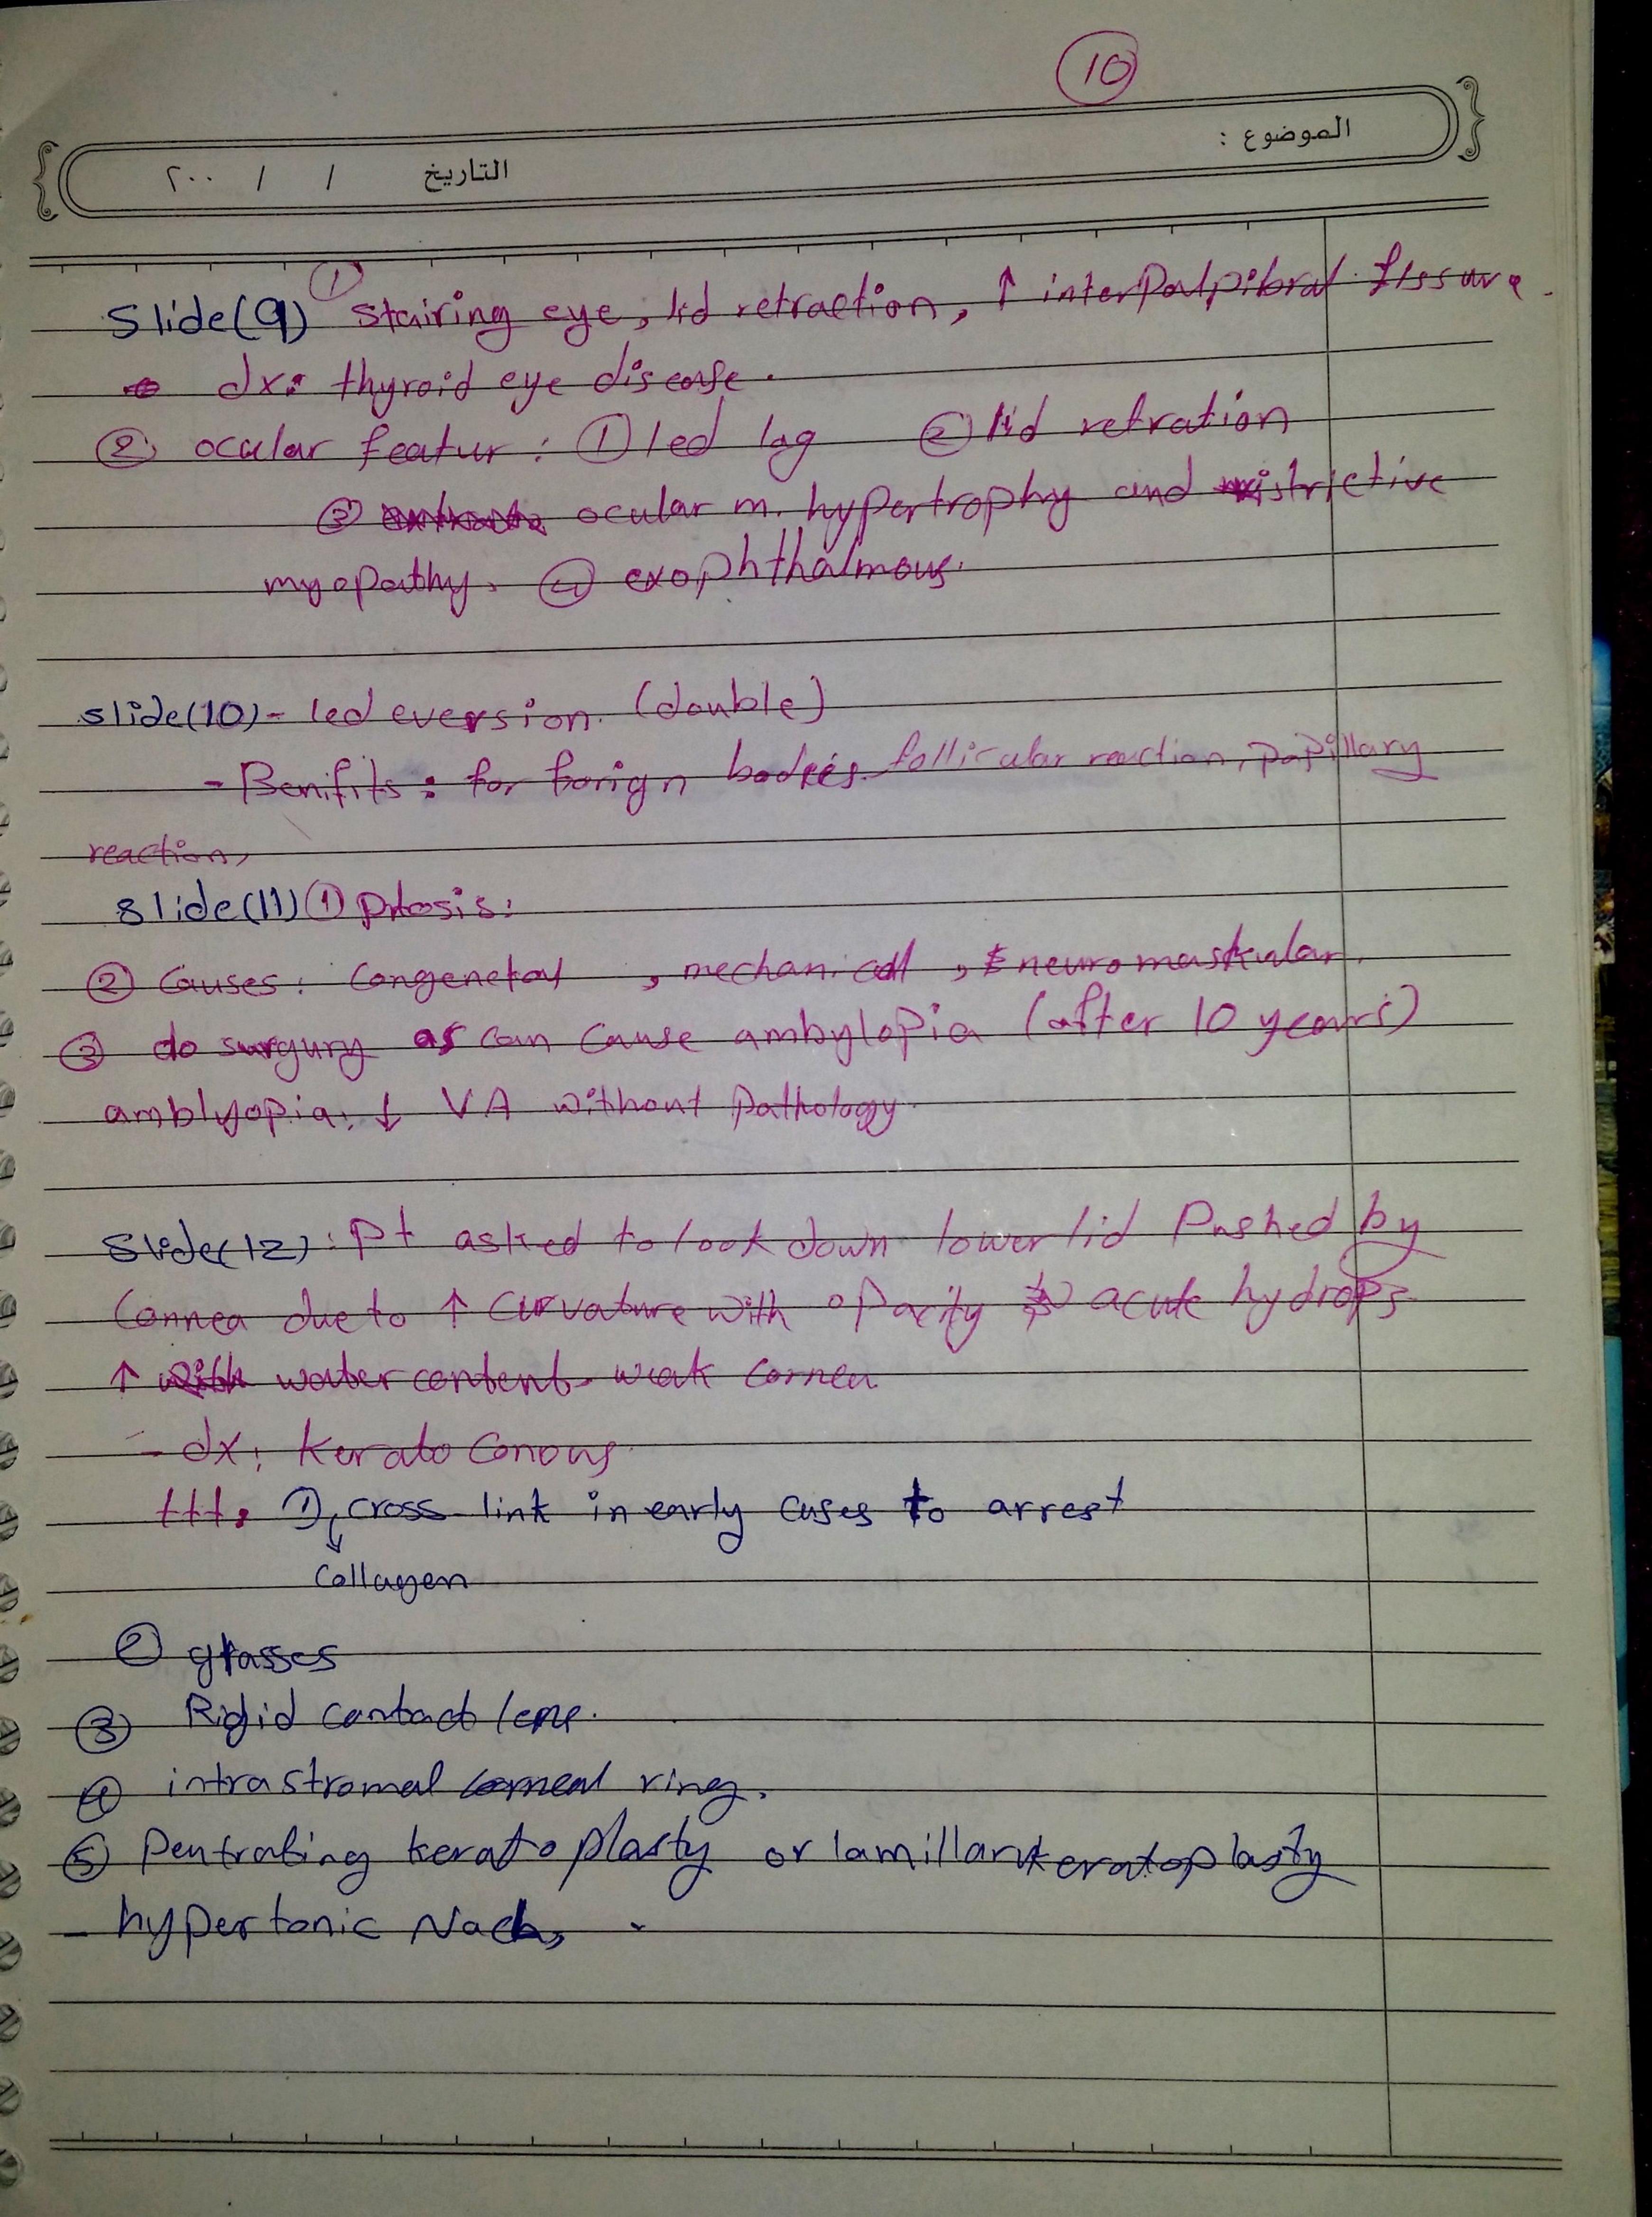 10
الموضوع :
التاريخ / / ٢٠٠
Slide(9) ① stairing eye, lid retraction, ↑ interpalpibral fissure.
dx: thyroid eye disease.
② ocular featur: ① led lag ② lid retration
③ ocular m. hypertrophy and ristrictive
myopathy. ④ exophthalmous.
slide(10) - led eversion. (double)
- Benifits: for forign bodies. follicular reaction, papillary
reaction,
slide(11) ① ptosis:
② Causes: Congenetal, mechanical, neuromuskular.
③ do surgury as can cause ambylopia (after 10 years)
amblyopia: ↓ VA without pathology.
Slide(12): pt asked to look down lower lid pushed by
Connea due to ↑ curvature with opacity acute hydrops
↑ water content - weak cornea
- dx: Kerato Conous.
ttt: ① cross link in early cases to arrest
↓
Collagen
② glasses
③ Rigid contact lens.
④ intrastromal corneal ring.
⑤ Pentrating keratoplasty or lamillar keratoplasty
- hypertonic NaCl,